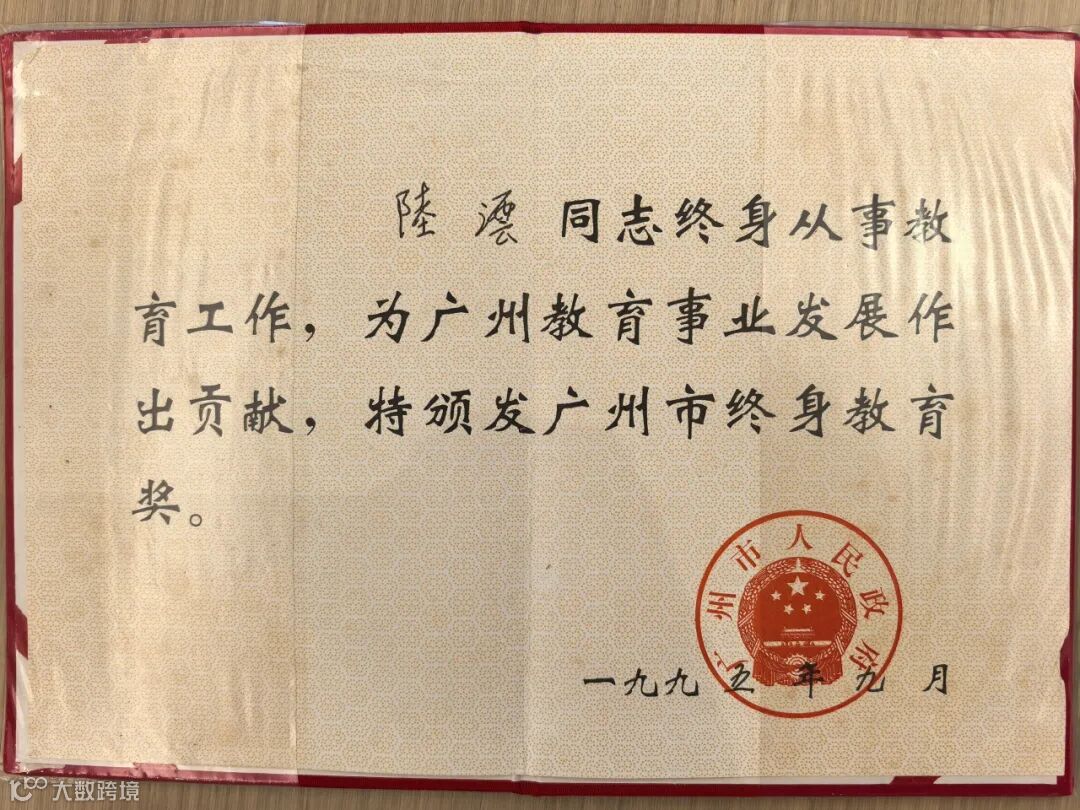 陸澐同志终身从事教
育工作，为广州教育事业发展作
出贡献，特颁发广州市终身教育
奖。
广州市人民政府
一九九五年九月
大数跨境